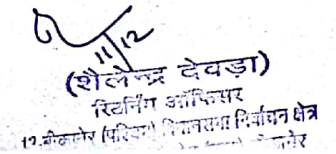 11/12
(शैलेन्द्र देवड़ा)
रिटर्निंग ऑफिसर
12.बीकानेर (पश्चिम) विधानसभा निर्वाचन क्षेत्र